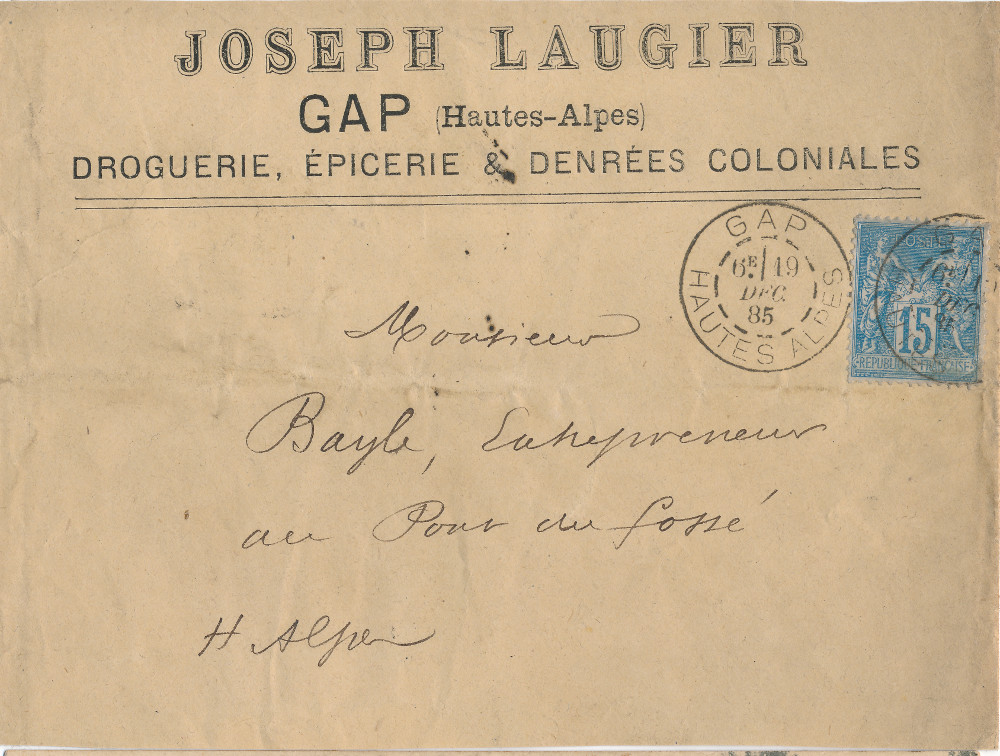 JOSEPH LAUGIER
GAP (Hautes-Alpes)
DROGUERIE, ÉPICERIE & DENRÉES COLONIALES
GAP
6E 19
DEC.
85
HAUTES ALPES
15
REPUBLIQUE FRANÇAISE
Monsieur
Bayle, Entrepreneur
au Pont du fossé
H Alpes